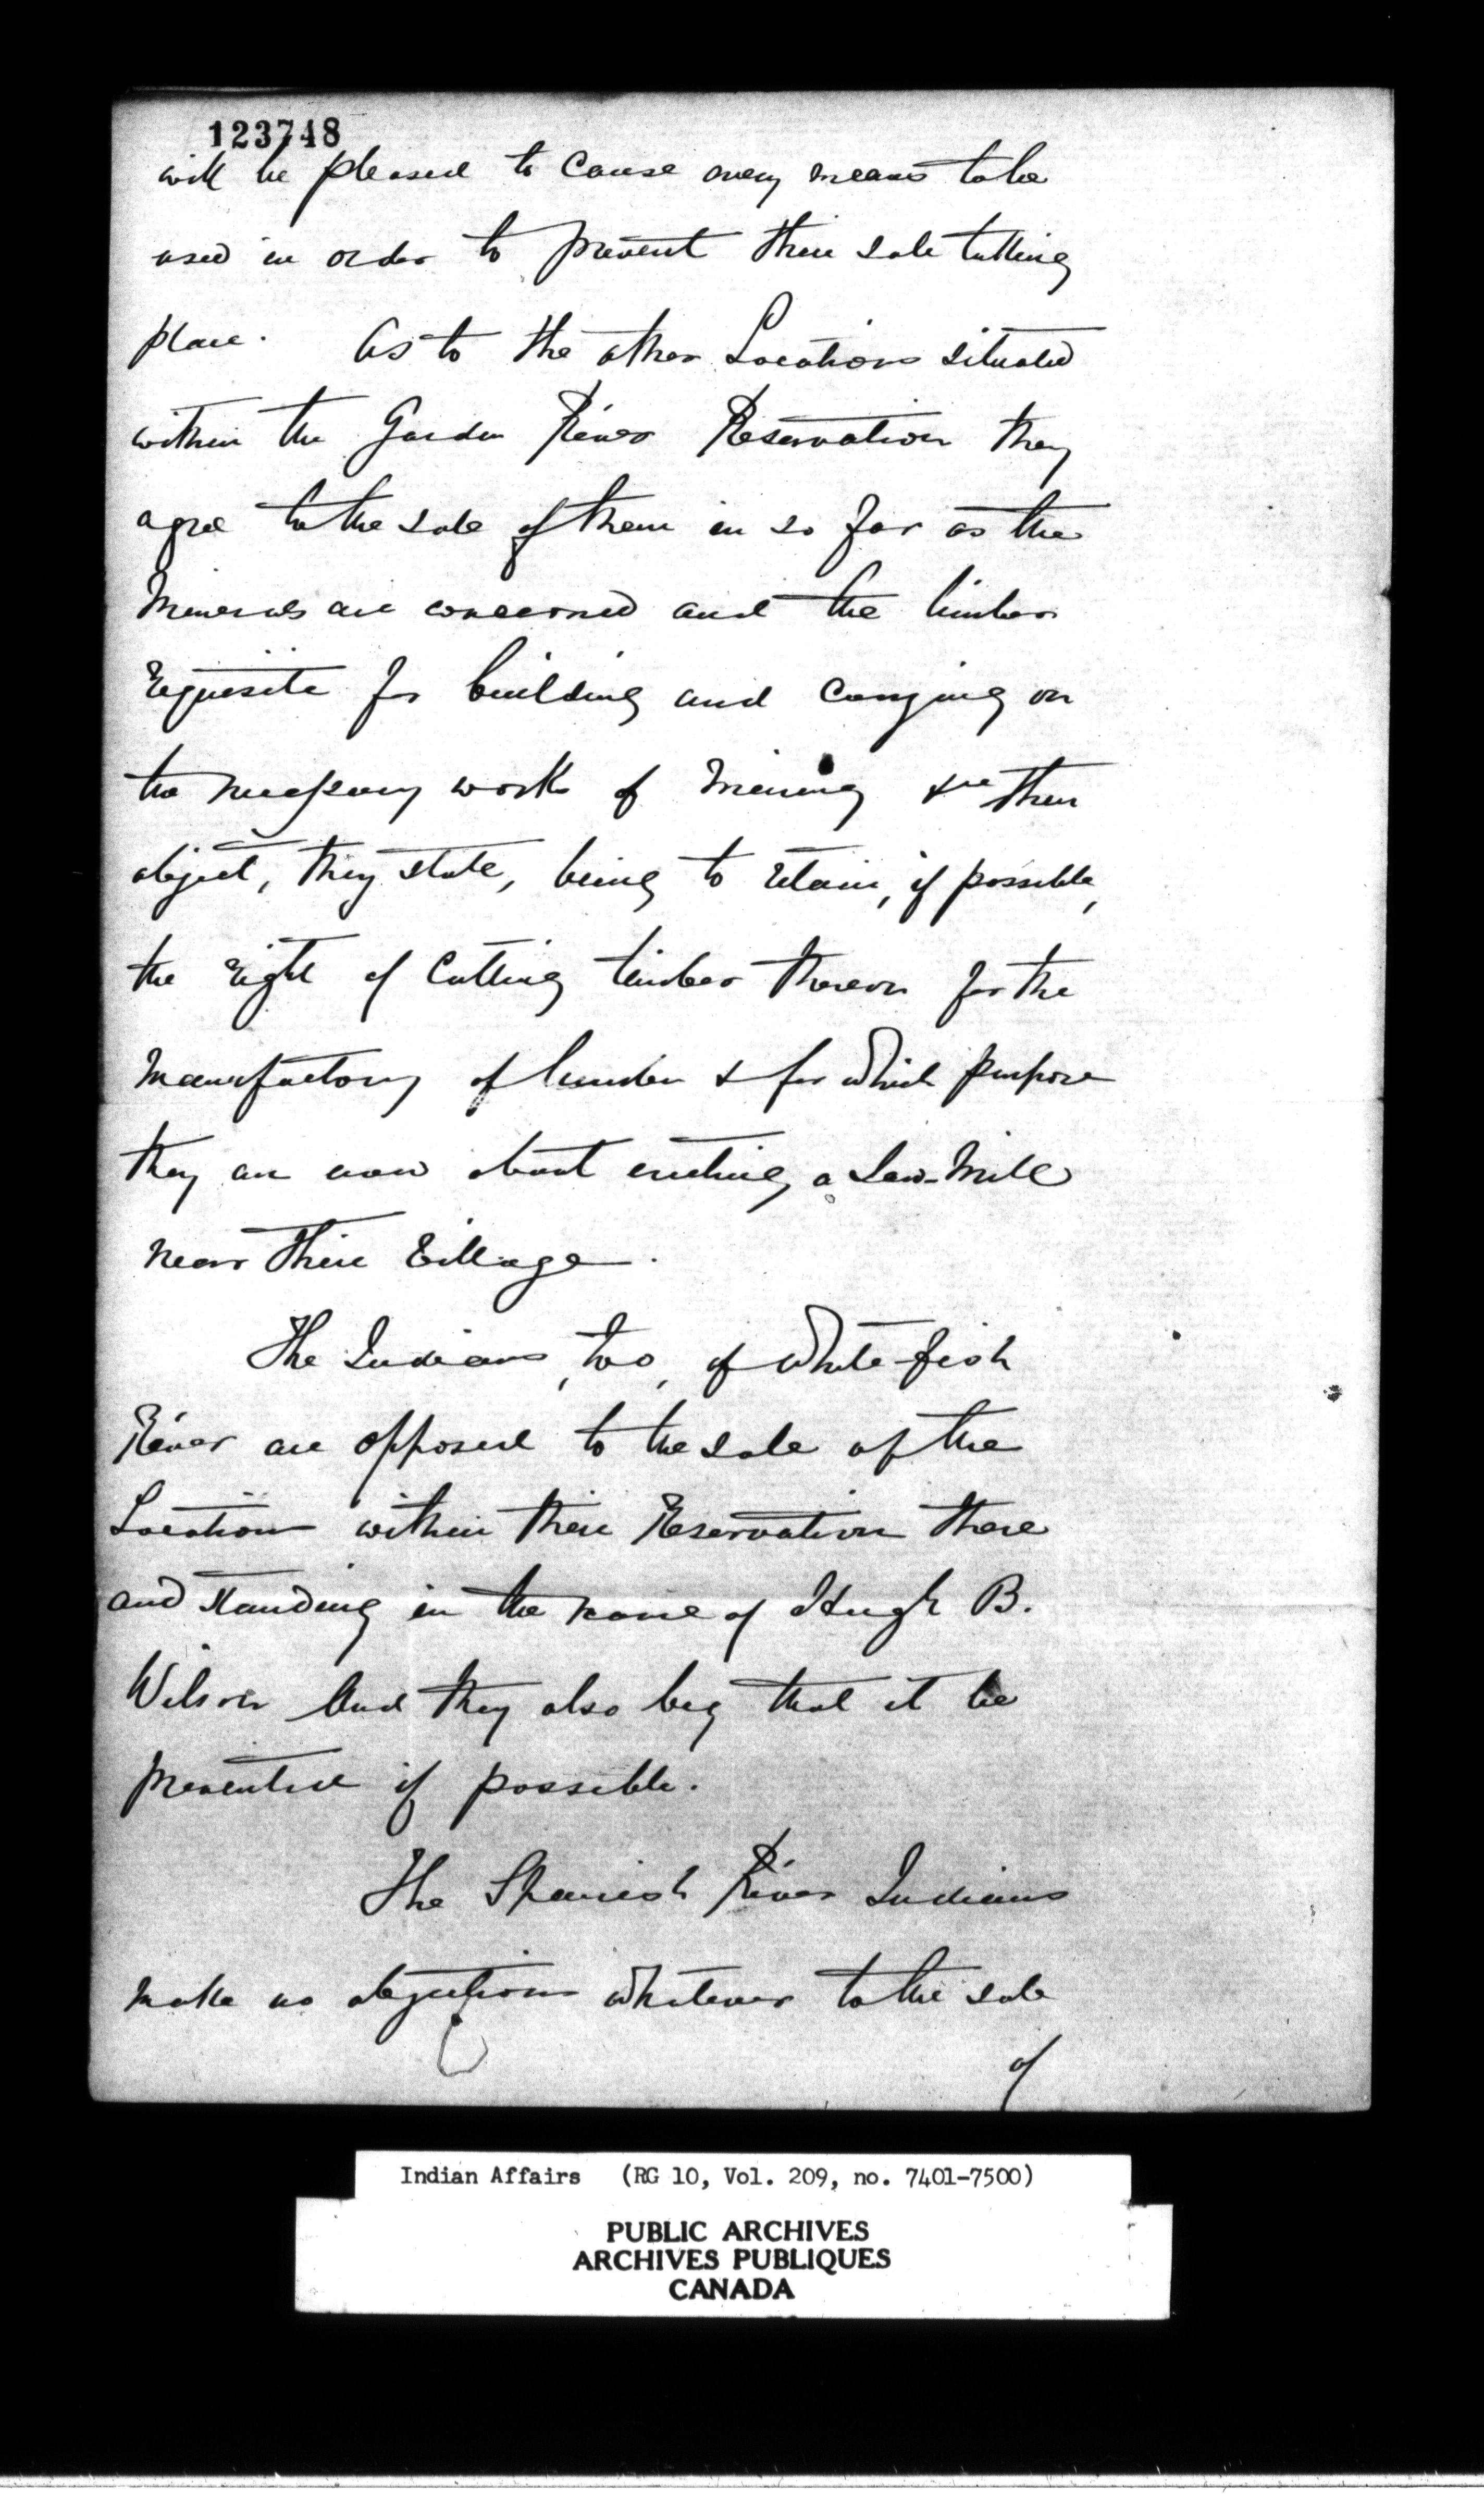 123748
will be pleased to cause every means to be
used in order to prevent their sale taking
place. As to the other Locations situated
within the Garden River Reservation they
agree to the sale of them in so far as the
Minerals are concerned and the timber
requisite for building and carrying on
the necessary work of Mining &ca their
object, they state, being to retain, if possible,
the right of Cutting timber thereon for the
Manufactory of lumber & for which purpose
they are now about erecting a Saw-Mill
near their Village.
The Indians, too, of White-fish
River are opposed to the sale of the
Locations within their Reservation there
and standing in the name of Hugh B.
Wilson And they also beg that it be
prevented if possible.
The Spanish River Indians
make no objections whatever to the sale
of
Indian Affairs (RG 10, Vol. 209, no. 7401-7500)
PUBLIC ARCHIVES
ARCHIVES PUBLIQUES
CANADA